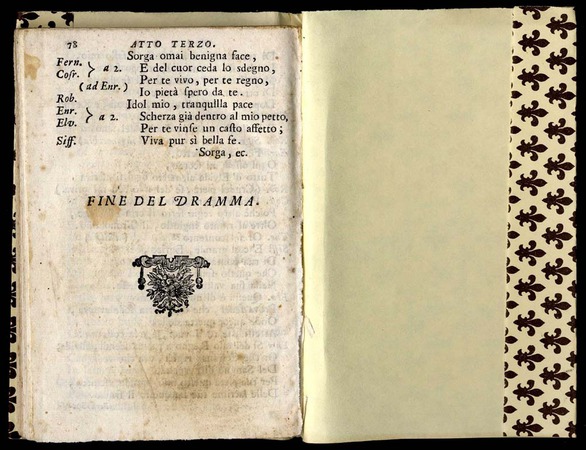 78 ATTO TERZO.
Sorga omai benigna face,
Fern. Cosr. } a 2. E del cuor ceda lo sdegno,
(ad Enr.) Per te vivo, per te regno,
Rob. Io pietà spero da te.
Enr. Elv. } a 2. Idol mio, tranquilla pace
Scherza già dentro al mio petto,
Per te vinse un casto affetto;
Siff. Viva pur sì bella fe.
Sorga, ec.
FINE DEL DRAMMA.